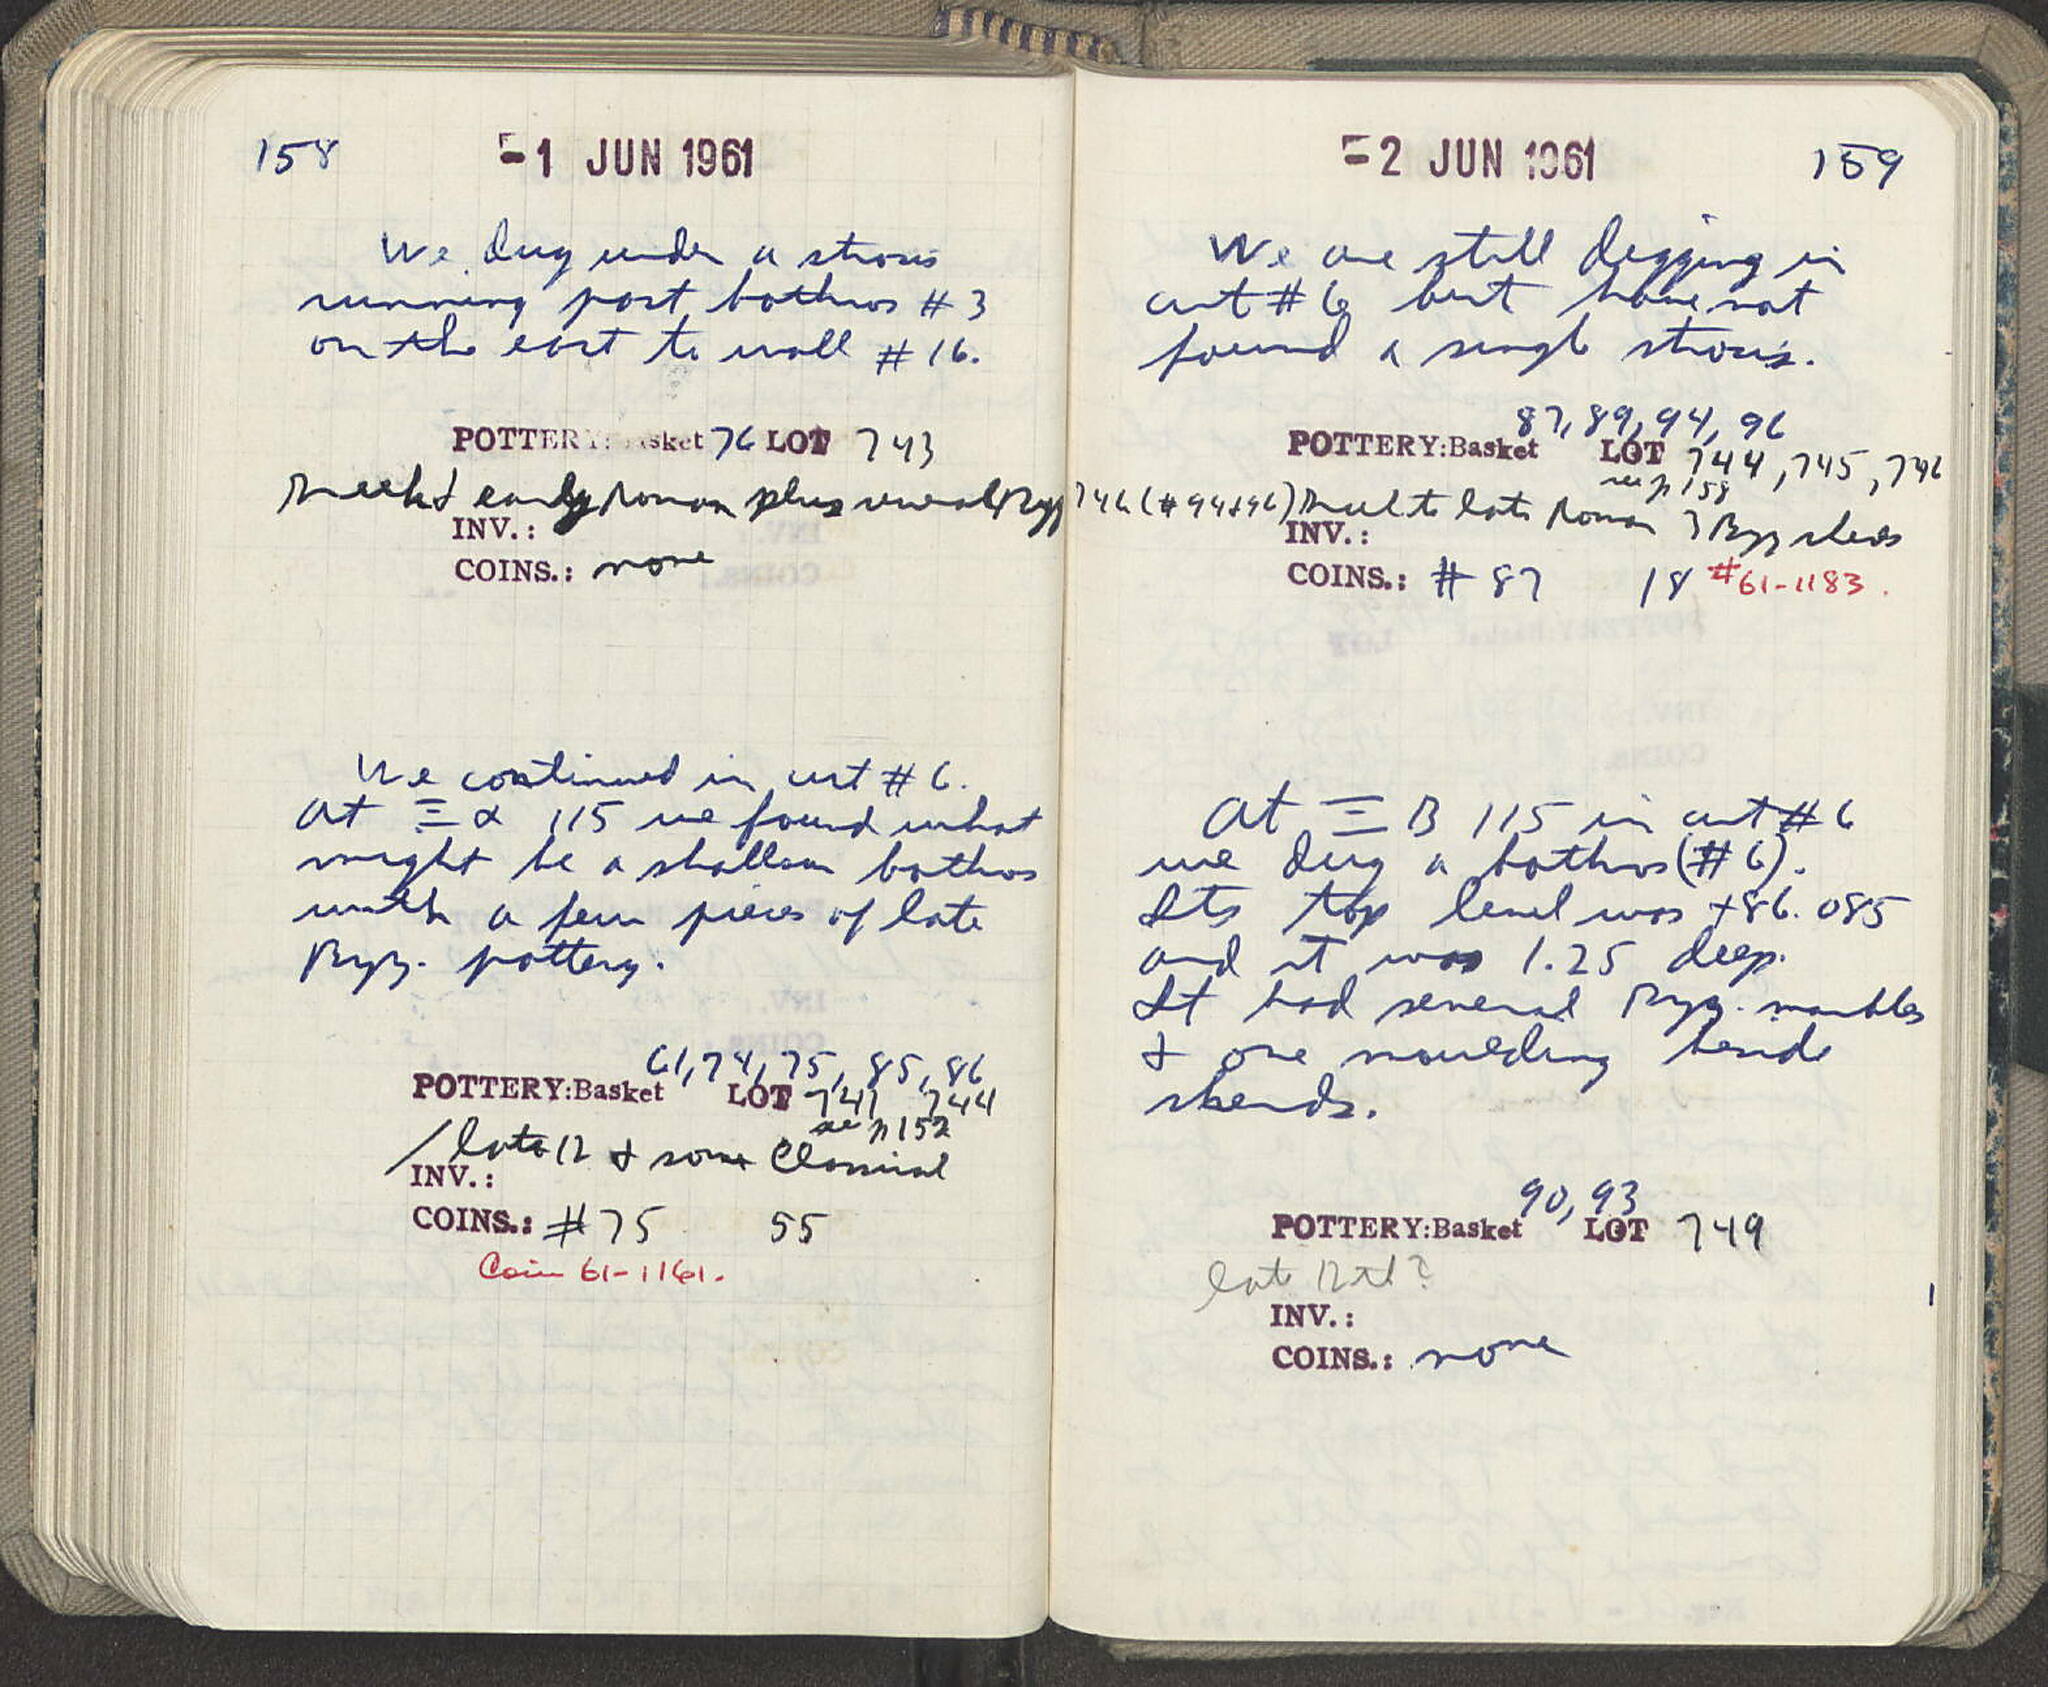 158
-1 JUN 1961
We dug under a strosis
running past bothros #3
on the east to wall #16.
POTTERY: Basket 76 LOT 743
Greek & early Roman plus several Byz
INV.:
COINS.: none
We continued in cut #6.
At Ξ α 115 we found what
might be a shallow bothros
with a few pieces of late
Byz. pottery.
61, 74, 75, 85, 86
POTTERY:Basket LOT 741 744
see p 152
late 12 & some Classical
INV.:
COINS.: #75 55
Coin 61-1161.
-2 JUN 1961
159
We are still digging in
cut #6 but have not
found a single strosis.
87, 89, 94, 96
POTTERY:Basket LOT 744, 745, 746
see p 158
746 (#94+96) Greek to late Roman 3 Byz sherds
INV.:
COINS.: #87 18 #61-1183.
At Ξ B 115 in cut #6
we dug a bothros (#6).
Its top level was +86.085
and it was 1.25 deep.
It had several Byz. marbles
& one moulding beside
sherds.
90, 93
POTTERY:Basket LOT 749
late 12th?
INV.:
COINS.: none